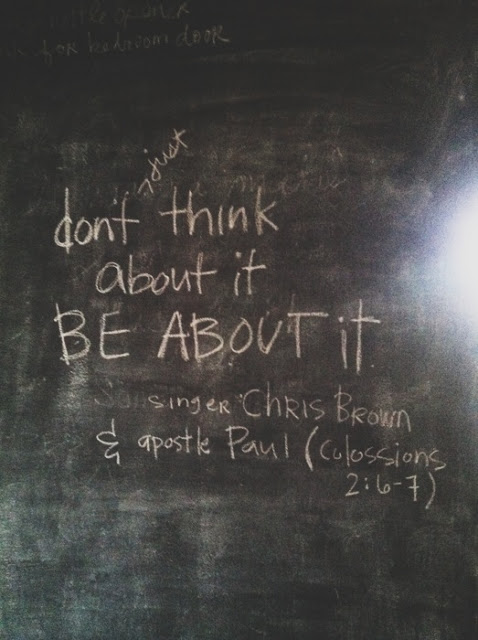 for bedroom dooR
just
don't think
about it
BE ABOUT it
singer CHRIS BROWN
& apostle Paul (Colossions
2:6-7)